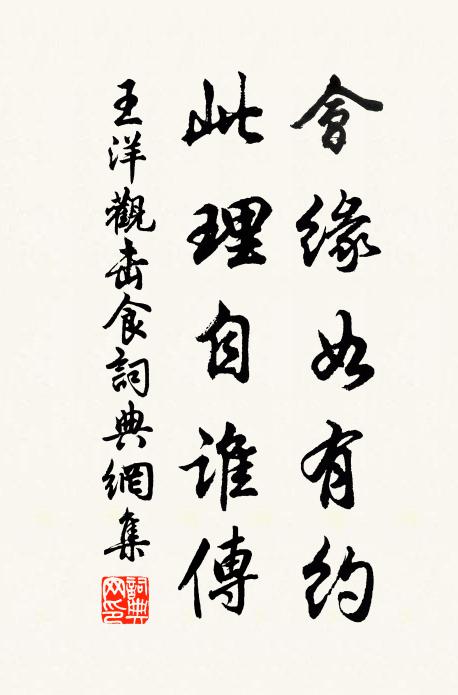 會緣如有約
此理自誰傳
王洋觀食詞典網集
詞典
网印